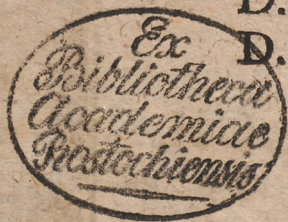 D.
Ex
D.
Bibliotheca
Academiae
Rostochiensis